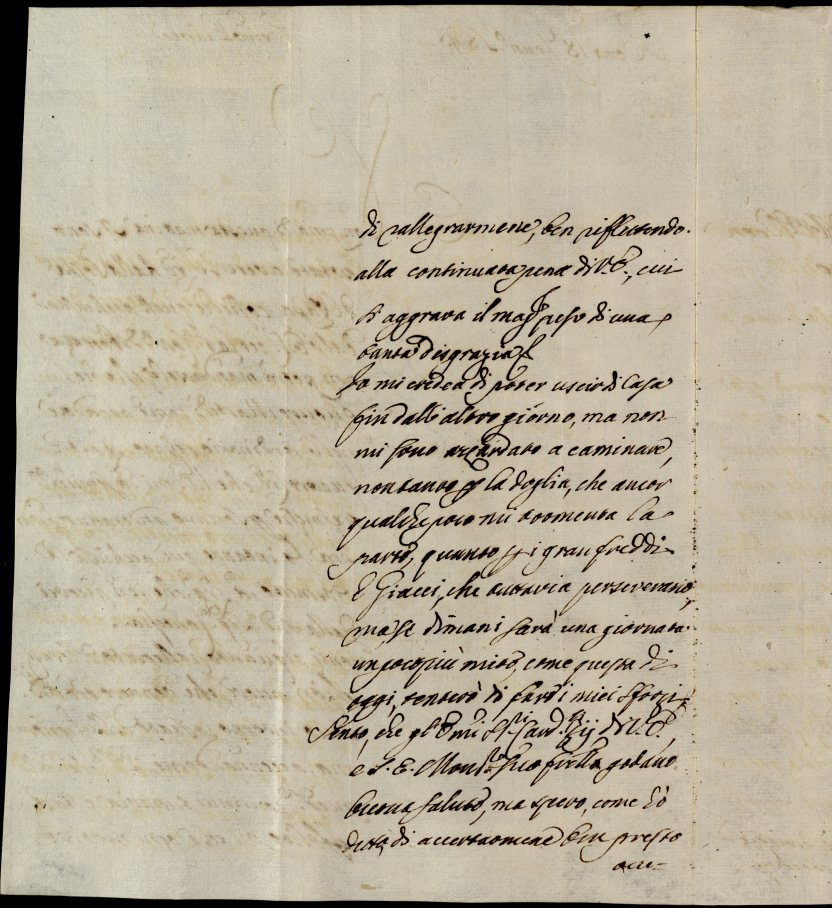 di rallegrarmene, ben riflettendo
alla continuata pena di V.E., cui
si aggrava il mag.r peso di una
tanta disgrazia
Io mi credea di poter uscir di Casa
fin dall'altro giorno, ma non
mi sono azzardato a caminare,
non tanto p la doglia, che ancor
qualche poco mi tormenta la
parte, quanto p i gran freddi
e Giacci, che tuttavia perseverano,
ma se dimani sarà una giornata
un poco più mite, come questa di
oggi, tenterò di far di miei sforzi
Sento, che gl'Emi SS.ri Card. Zij di V.E.,
e S.E. Mons.r suo frello godano
buona salute, ma spero, come hò
detto, di accertarmene ben presto